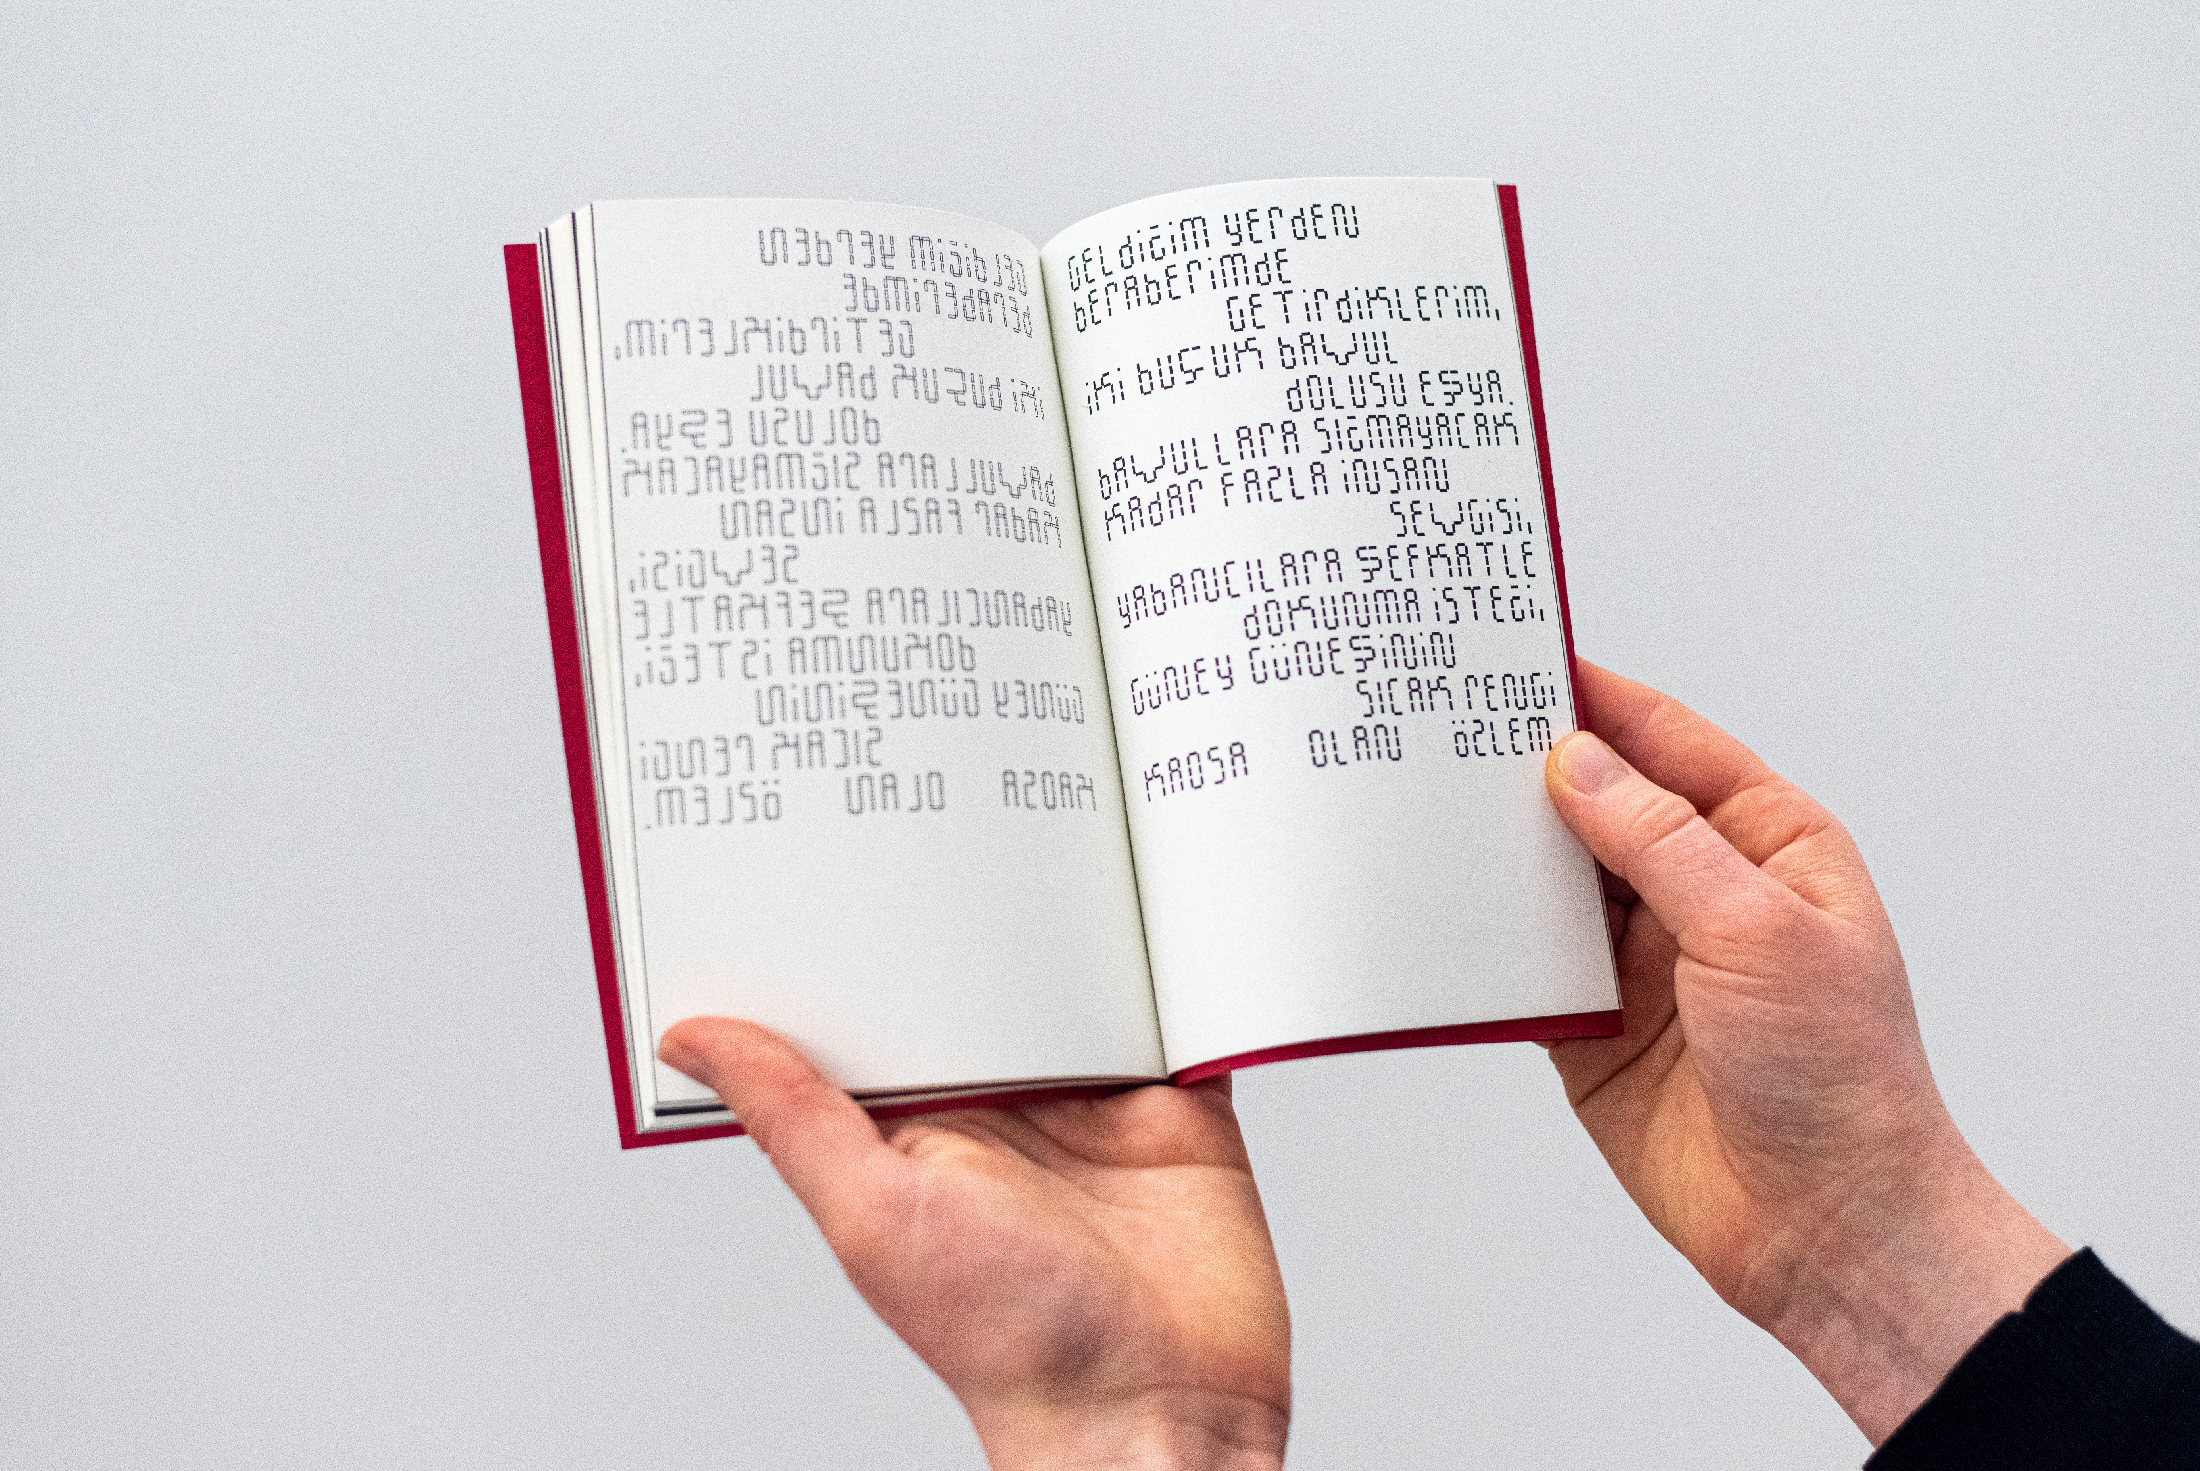 GELDİĞİM YERDEN
BERABERİMDE
GETİRDİKLERİM,
İKİ BUÇUK BAVUL
DOLUSU EŞYA.
BAVULLARA SIĞMAYACAK
KADAR FAZLA İNSAN
SEVGİSİ,
YABANCILARA ŞEFKATLE
DOKUNMA İSTEĞİ,
GÜNEY GÜNEŞİNİN
SICAK RENGİ
KAOSA OLAN ÖZLEM.